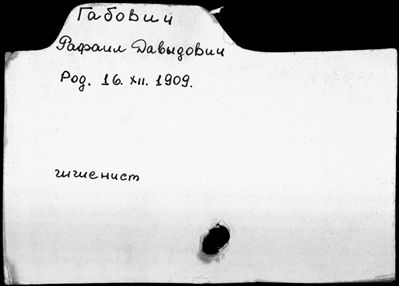 Габович
Рафаил Давыдович
Род. 16. XII. 1909.
гигиенист